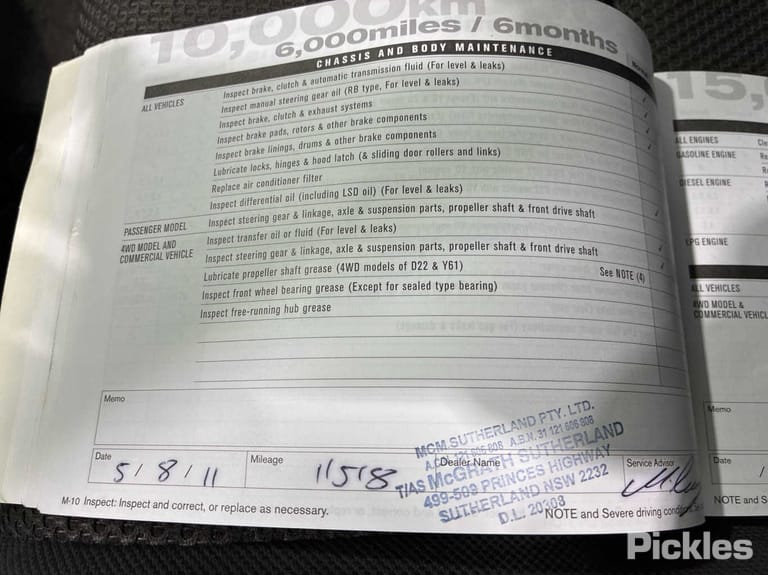 10,000km
6,000miles / 6months
CHASSIS AND BODY MAINTENANCE
ALL VEHICLES
Inspect brake, clutch & automatic transmission fluid (For level & leaks)
Inspect manual steering gear oil (RB type, For level & leaks)
Inspect brake, clutch & exhaust systems
Inspect brake pads, rotors & other brake components
Inspect brake linings, drums & other brake components
Lubricate locks, hinges & hood latch (& sliding door rollers and links)
Replace air conditioner filter
Inspect differential oil (including LSD oil) (For level & leaks)
PASSENGER MODEL
Inspect steering gear & linkage, axle & suspension parts, propeller shaft & front drive shaft
4WD MODEL AND
COMMERCIAL VEHICLE
Inspect transfer oil or fluid (For level & leaks)
Inspect steering gear & linkage, axle & suspension parts, propeller shaft & front drive shaft
Lubricate propeller shaft grease (4WD models of D22 & Y61)
Inspect front wheel bearing grease (Except for sealed type bearing) See NOTE (4)
Inspect free-running hub grease
Memo
Date 5/8/11
Mileage 11518
Dealer Name
Service Advisor
MCM SUTHERLAND PTY. LTD.
A.B.N. 31 121 606 808
T/AS McGRATH SUTHERLAND
499-503 PRINCES HIGHWAY
SUTHERLAND NSW 2232
D.L. 20303
M-10 Inspect: Inspect and correct, or replace as necessary.
NOTE and Severe driving
15,
ALL ENGINES
GASOLINE ENGINE
DIESEL ENGINE
LPG ENGINE
ALL VEHICLES
4WD MODEL &
COMMERCIAL VEHICL
Memo
Date
NOTE and S
Pickles